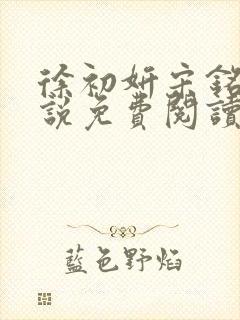 徐初妍宋銘
說免費閱讀
藍色野焰